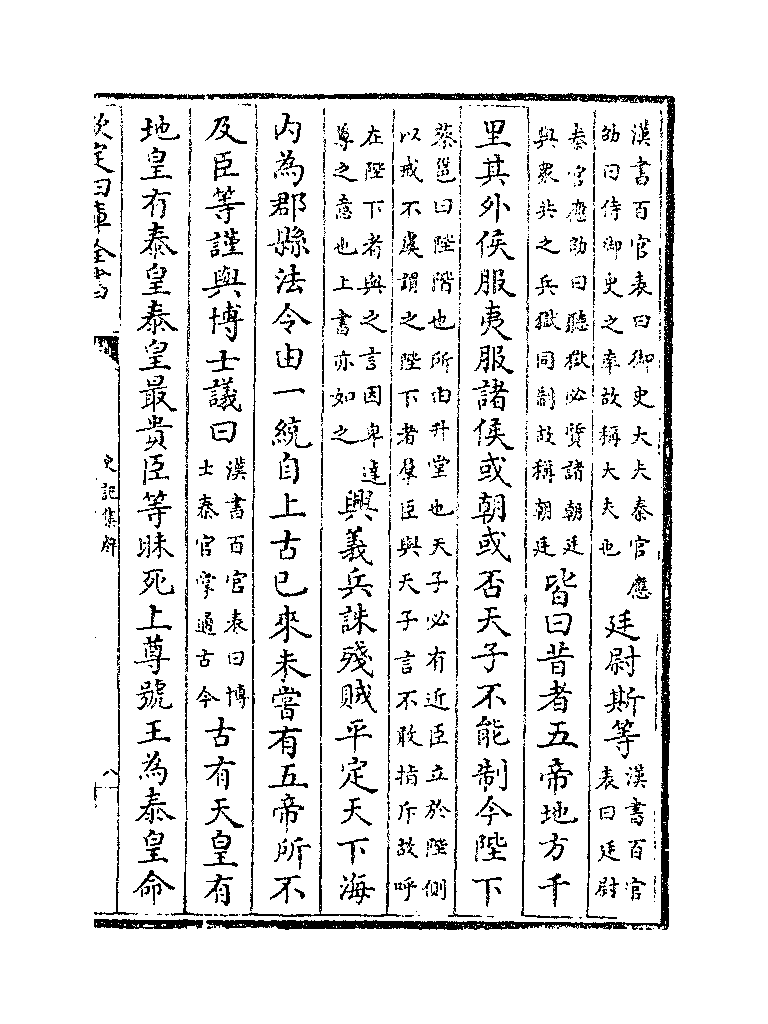 漢書百官表曰御史大夫秦官應
劭曰侍御史之率故稱大夫也
廷尉斯等
漢書百官
表曰廷尉
秦官應劭曰聽獄必質諸朝廷
與眾共之兵獄同制故稱朝廷
皆曰昔者五帝地方千
里其外侯服夷服諸侯或朝或否天子不能制今陛下
蔡邕曰陛階也所由升堂也天子必有近臣立於陛側
以戒不虞謂之陛下者羣臣與天子言不敢指斥故呼
在陛下者與之言因卑達
尊之意也上書亦如之
興義兵誅殘賊平定天下海
内為郡縣法令由一統自上古已來未嘗有五帝所不
及臣等謹與博士議曰
漢書百官表曰博
士秦官掌通古今
古有天皇有
地皇有泰皇泰皇最貴臣等昧死上尊號王為泰皇命
欽定四庫全書
史記集解